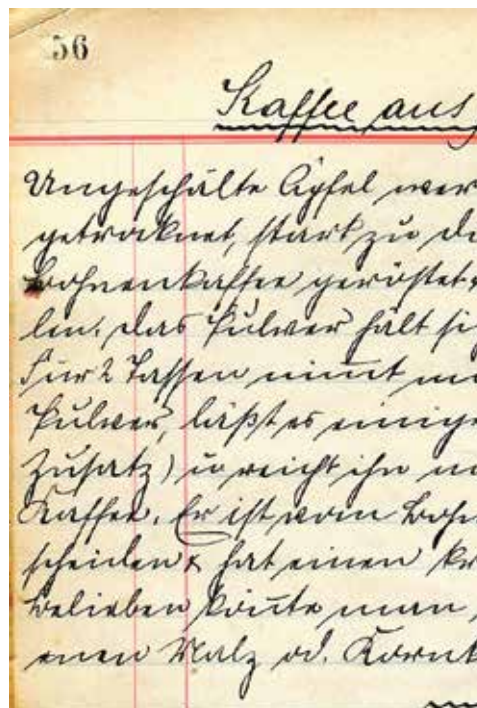 56
Kaffee aus
Ungeschälte Äpfel wer
getrocknet, stark zu
Bohnenkaffee geröstet
len. Das Pulver hält si
Für 2 Tassen nim̅t m
Pulver, läßt es einige
Zusatz) u reicht ihn m
Kaffee. Er ist vom Bohn
scheiden & hat einen kr
Belieben kön̅te man
enen Malz od. Kornk